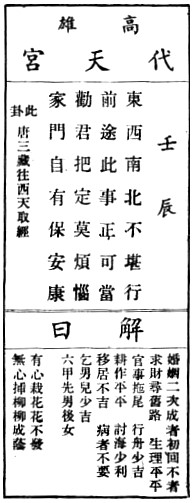 高雄
代天宮
壬辰
東西南北不堪行
前途此事正可當
勸君把定莫煩惱
家門自有保安康
此卦 唐三藏往西天取經
解曰
婚姻二次成者初回不者
求財尋舊路 生理平平
官事拖尾 行舟少吉
耕作平平 討海少利
移居不吉 病者不要
乞男兒少吉
六甲先男後女
有心栽花花不發
無心插柳柳成蔭